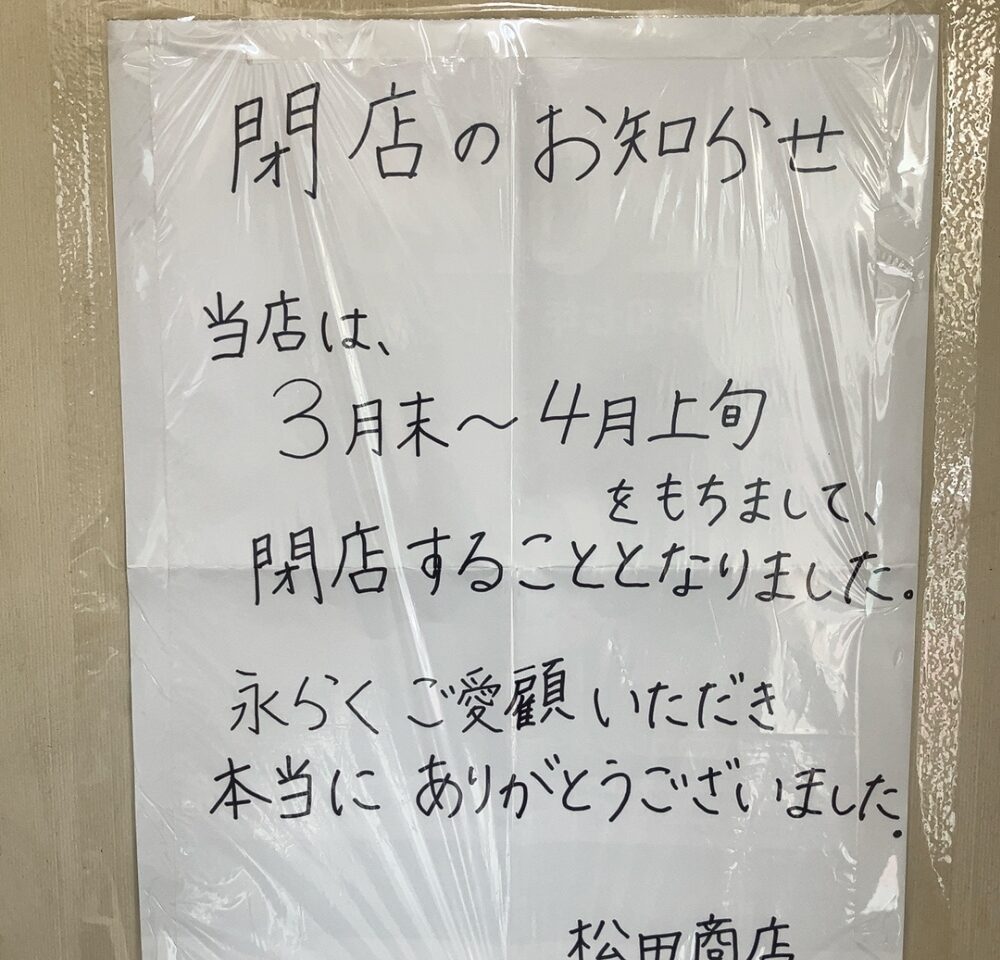 閉店のお知らせ
当店は、
3月末～4月上旬
をもちまして、
閉店することとなりました。
永らくご愛顧いただき
本当にありがとうございました。
松田商店